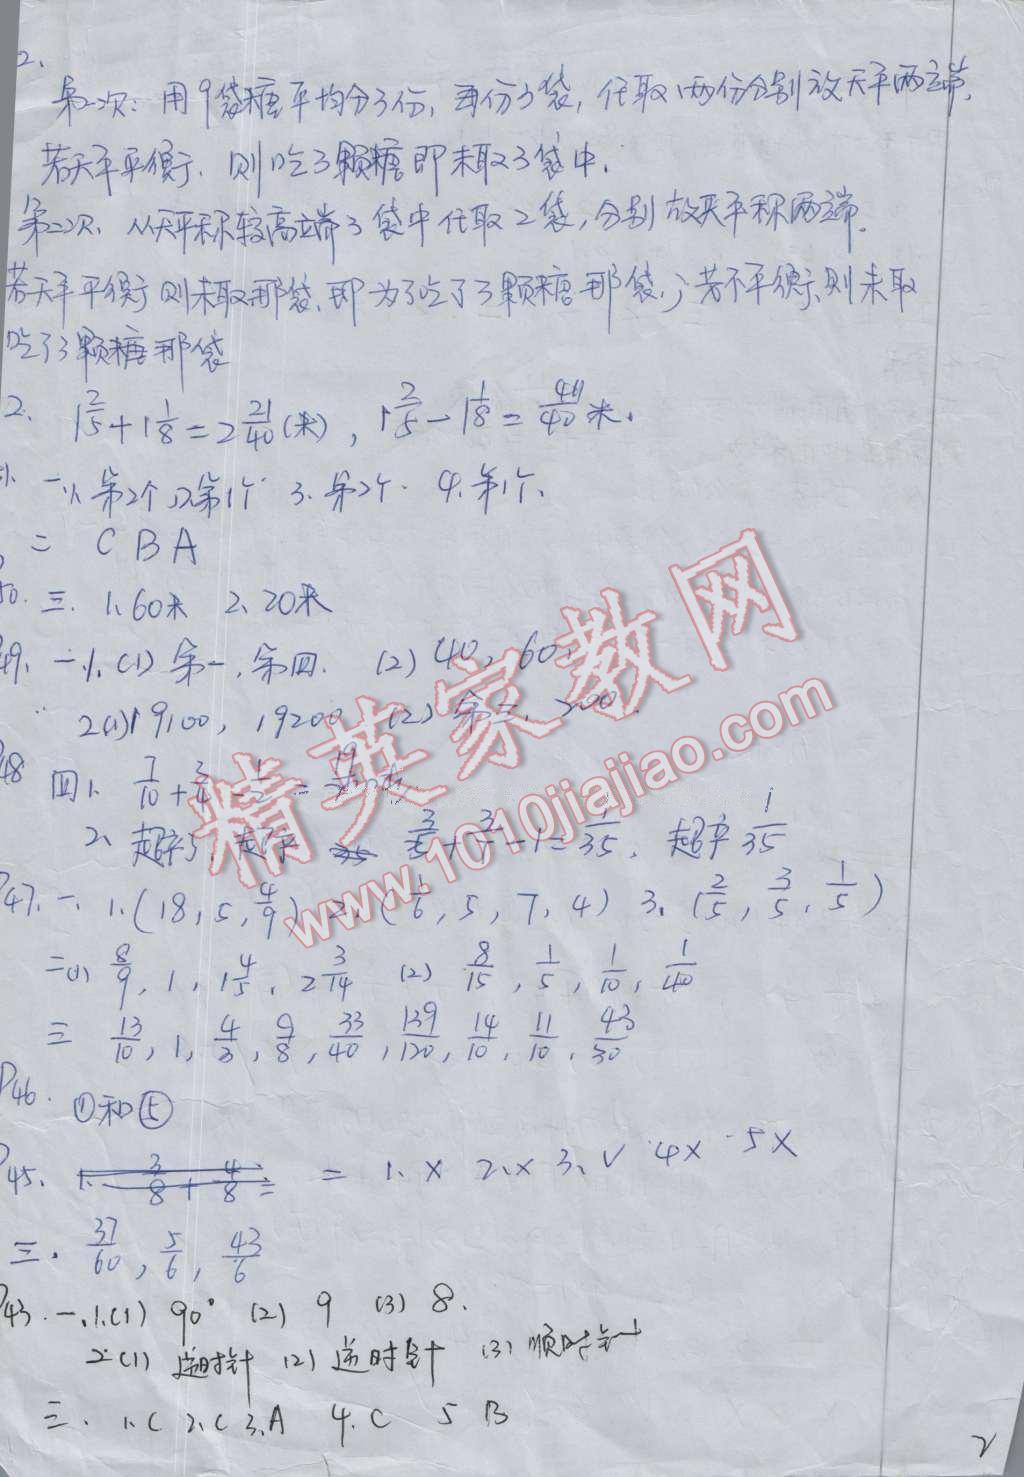 2、
第一次：用9袋糖平均分3份，每份3袋，任取两份分别放天平两端，
若天平平衡，则吃3颗糖即未取3袋中.
第二次、从天平称较高端3袋中任取2袋，分别放天平称两端.
若天平平衡则未取那袋，即为了吃了3颗糖那袋，；若不平衡、则未取
吃了3颗糖那袋
2、 1 2/5 + 1 1/8 = 2 21/40 (米)， 1 2/5 − 1 1/8 = 41/40 米.
一、1、第2个 2、第1个 3、第2个. 4、第1个.
二 C B A
50. 三、 1、60米 2、20米
P49、 一、1、(1) 第一、第四. (2) 40, 60,
2(1) 19100, 19200 (2) 第三, 200.
P48 四1、 7/10 + 3/4 − 1/2 = 19/20
2、超产了. 超产 3/5 + 3/7 − 1 = 1/35. 超产 1/35
P47、一、1、(18, 5, 4/9) 2、(1/6, 5, 7, 4) 3、(2/5, 3/5, 1/5)
二(1) 8/9, 1, 1 4/5, 2 3/14 (2) 8/15, 1/5, 1/10, 1/40
三 13/10, 1, 4/3, 9/8, 33/40, 139/120, 14/10, 11/10, 43/30
P46. ①和⑤
P45、 1. 3/8 + 4/8 = 二 1、× 2、× 3、√ 4× 5×
三、 37/60, 5/6, 43/6
P43. 一、1.(1) 90° (2) 9 (3) 8.
2.(1) 逆时针 (2) 逆时针 (3) 顺时针
三、 1.C 2、C 3.A 4.C 5 B
2
精英家教网
www.1010jiajiao.com